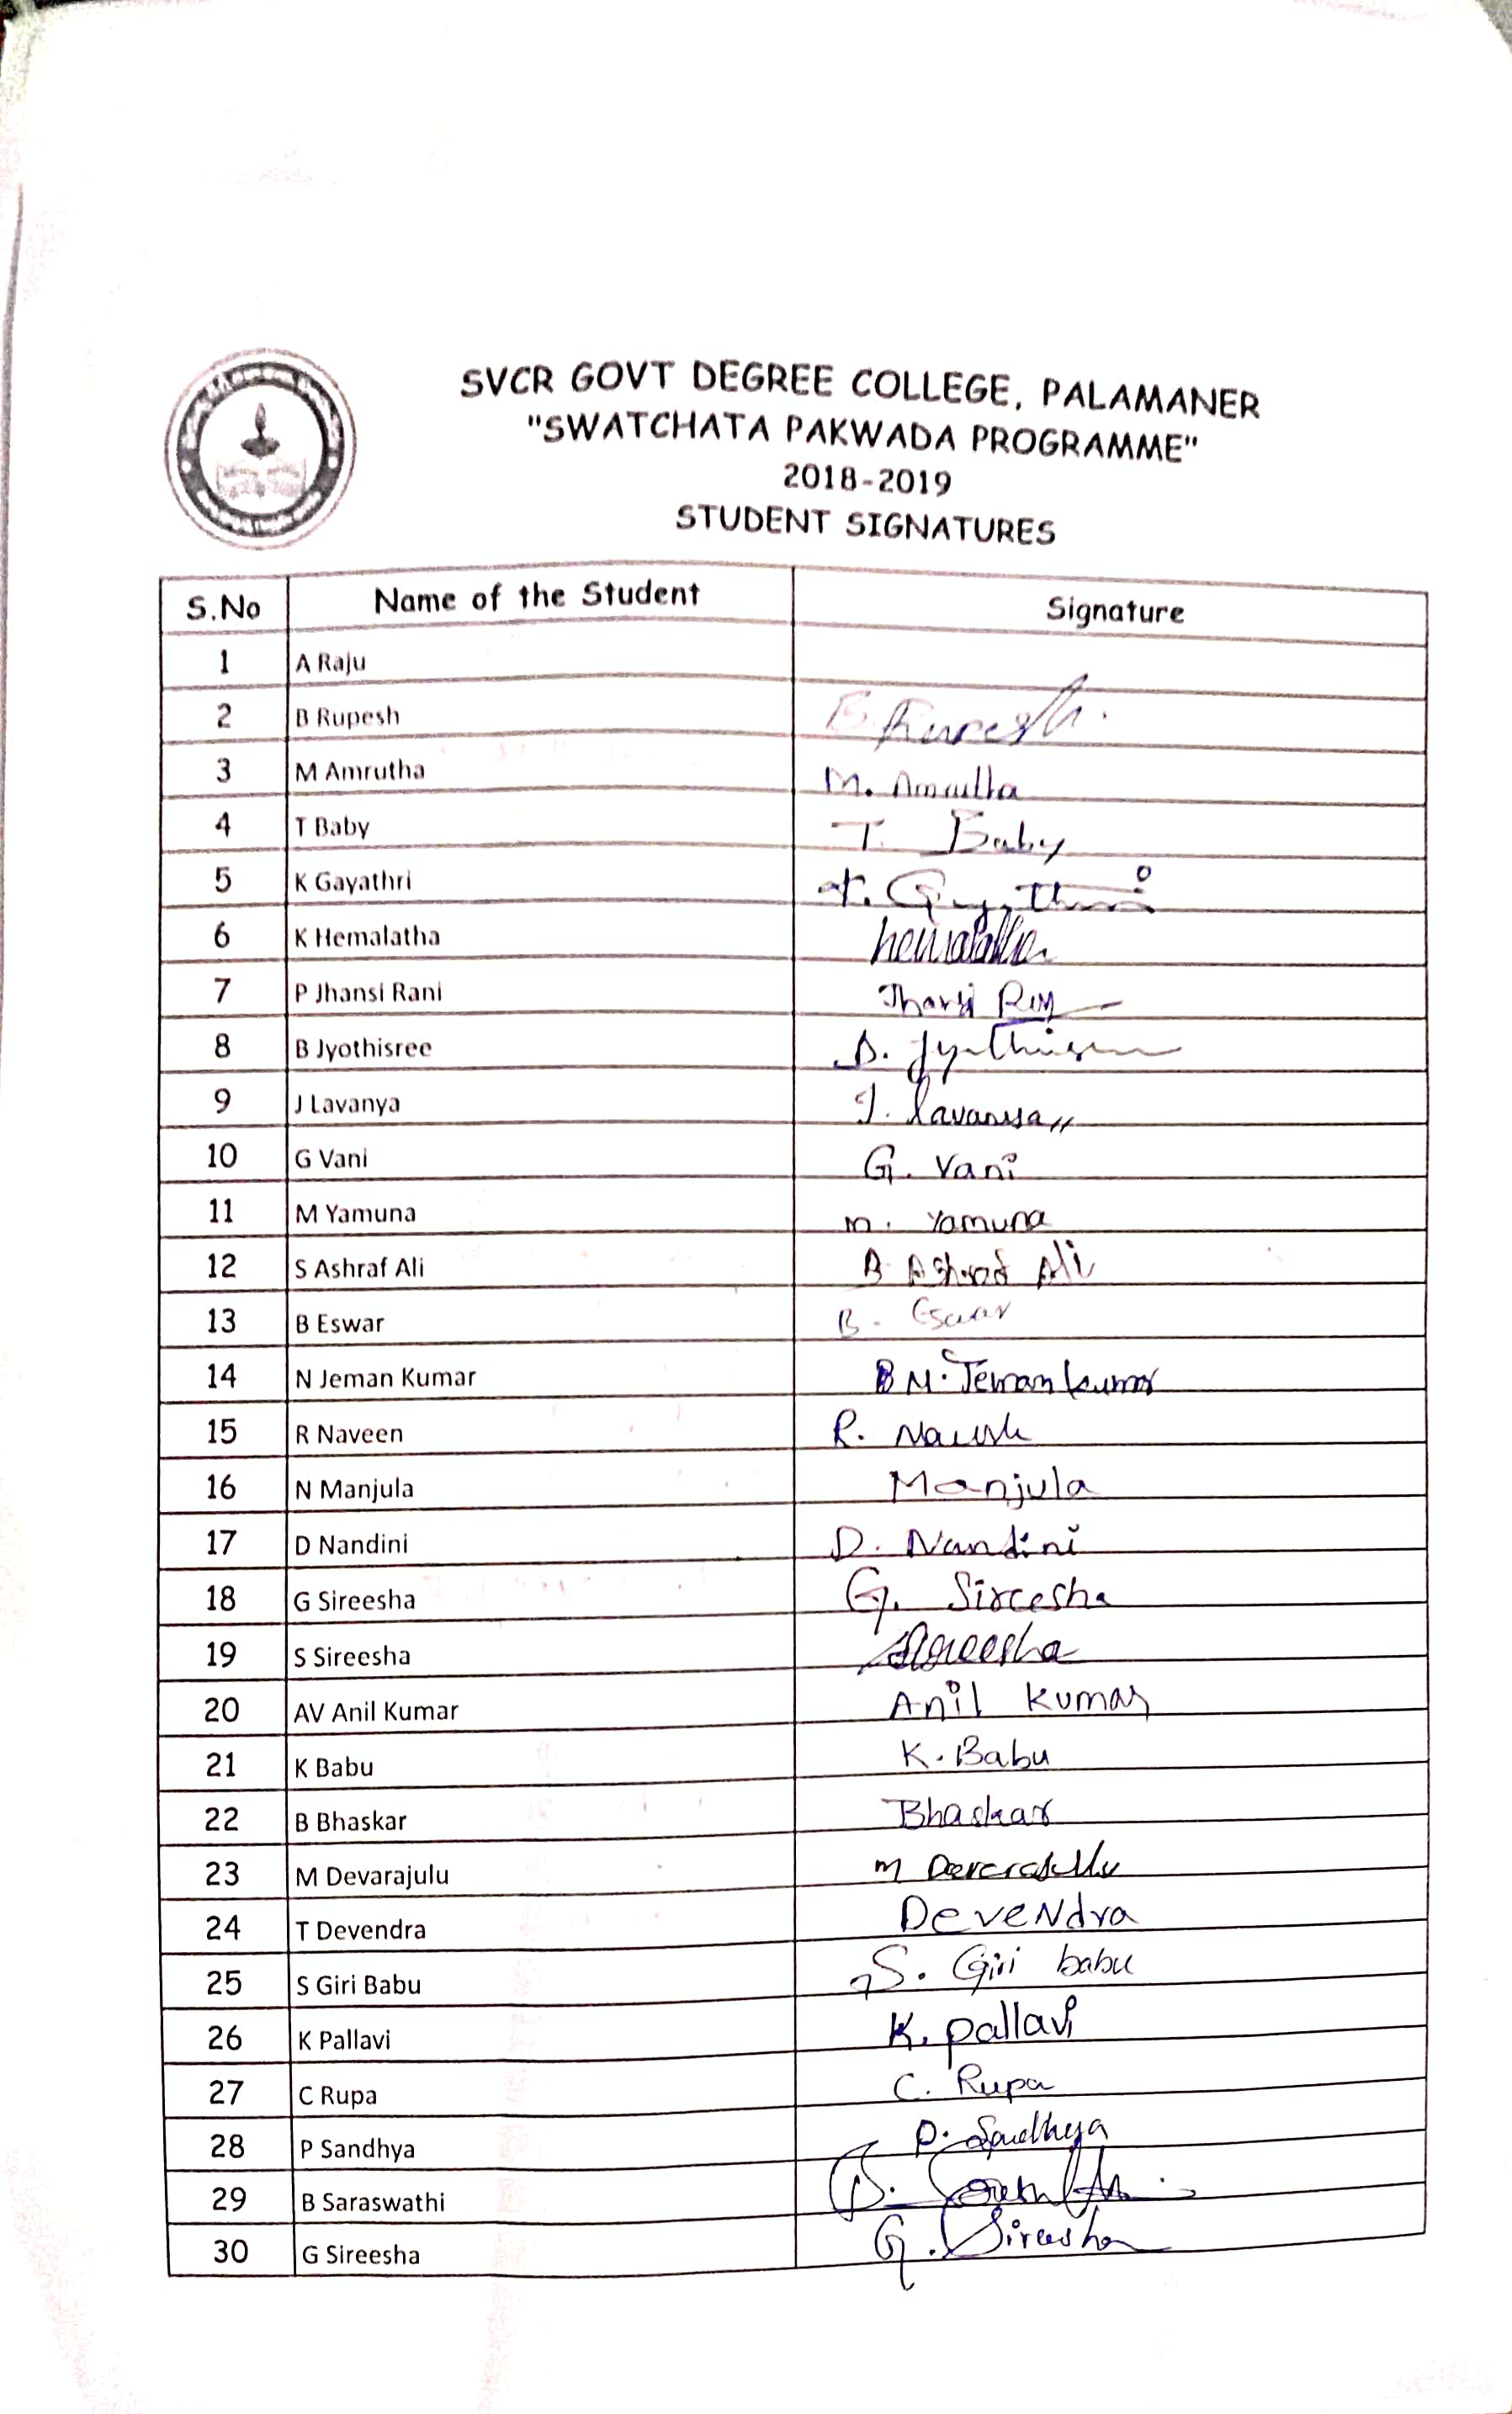 SVCR GOVT DEGREE COLLEGE, PALAMANER
"SWATCHATA PAKWADA PROGRAMME"
2018-2019
STUDENT SIGNATURES
S.No Name of the Student Signature
1 A Raju
2 B Rupesh B. Rupesh.
3 M Amrutha M. Amrutha
4 T Baby T. Baby
5 K Gayathri K. Gayathri
6 K Hemalatha hemalatha
7 P Jhansi Rani Jhansi Rani
8 B Jyothisree B. Jyothisree
9 J Lavanya J. Lavanya
10 G Vani G. Vani
11 M Yamuna M. Yamuna
12 S Ashraf Ali Ashraf Ali
13 B Eswar B. Eswar
14 N Jeman Kumar N. Jeman kumar
15 R Naveen R.
16 N Manjula Manjula
17 D Nandini D. Nandini
18 G Sireesha G. Sireesha
19 S Sireesha Sireesha
20 AV Anil Kumar Anil Kumar
21 K Babu K. Babu
22 B Bhaskar Bhaskar
23 M Devarajulu M Devarajullu
24 T Devendra Devendra
25 S Giri Babu S. Giri babu
26 K Pallavi K. pallavi
27 C Rupa C. Rupa
28 P Sandhya P. Sandhya
29 B Saraswathi B.
30 G Sireesha G. Sireesha